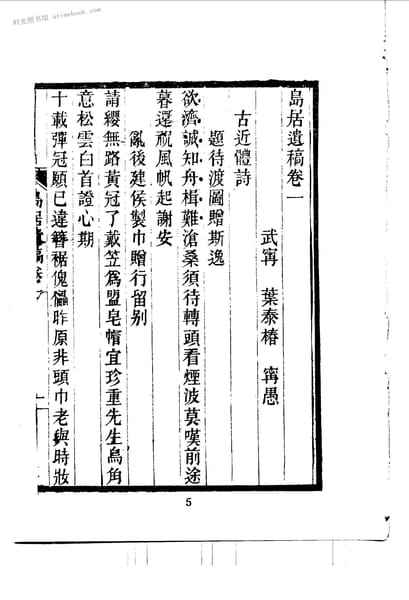 时光图书馆 - xtimebook.com
島居遺稿卷一
武寗 葉泰椿 寗愚
古近體詩
題待渡圖贈斯逸
欲濟誠知舟楫難滄桑須待轉頭看煙波莫嘆前途
暮還祝風帆起謝安
亂後建侯製巾贈行留別
請纓無路黃冠了戴笠爲盟皂帽宜珍重先生烏角
意松雲白首證心期
十載彈冠願已違簪裾傀儡昨原非頭巾老與時妝
島居遺稿卷一
一
5